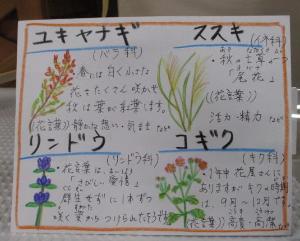 ユキヤナギ
(バラ科)
春には白く小さな
花をたくさん咲かせ
秋は葉が紅葉します。
((花言葉)) 静かな想い・気まま など
ススキ
(イネ科)
・秋の七草の1つ
「尾花」
((花言葉))
活力・精力 など
リンドウ
(リンドウ科)
・花言葉は、
「さびしい愛情」
群生せずに1本ずつ
咲く姿からつけられたそうです
コギク
(キク科)
・1年中 花屋さんに
ありますが キクの時期
は、9月〜12月です
((花言葉)) 高貴・高潔 など